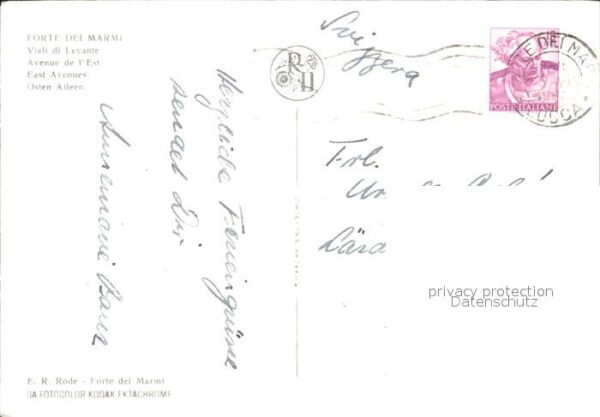 FORTE DEI MARMI
Viali di Levante
Avenue de l'Est
East Avenues
Osten Alleen
Svizzera
POSTE ITALIANE
LUCCA
Herzliche Feriengrüsse
sendet Dir
Annemarie
Frl.
privacy protection
Datenschutz
E. R. Rode - Forte dei Marmi
DA FOTOCOLOR KODAK EKTACHROME